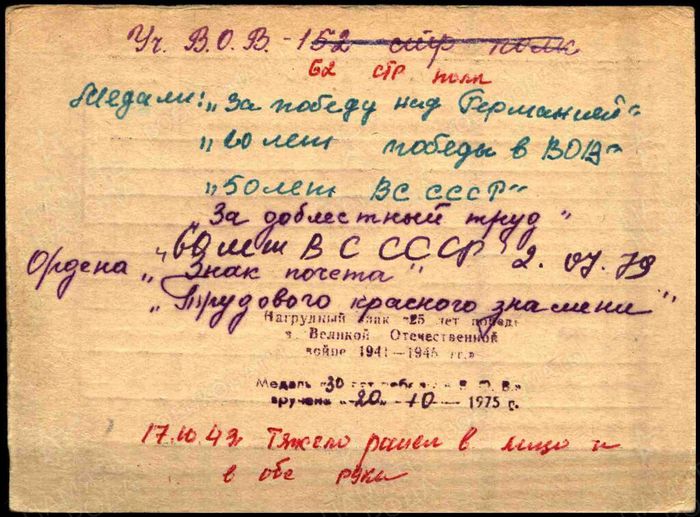 Уч. В.О.В. - 152 стр полк
62 стр полк
Медали: „За победу над Германией"
„20 лет победы в ВОВ"
„50 лет ВС СССР"
„За доблестный труд"
„60 лет ВС СССР" 2.07.79
Ордена „Знак почета"
„Трудового красного знамени"
Нагрудный знак «25 лет победы
в Великой Отечественной
войне 1941—1945 гг.»
Медаль «30 лет победы в В.О.В.»
вручена «20» 10 — 1975 г.
17.10.42г Тяжело ранен в лицо и
в обе руки